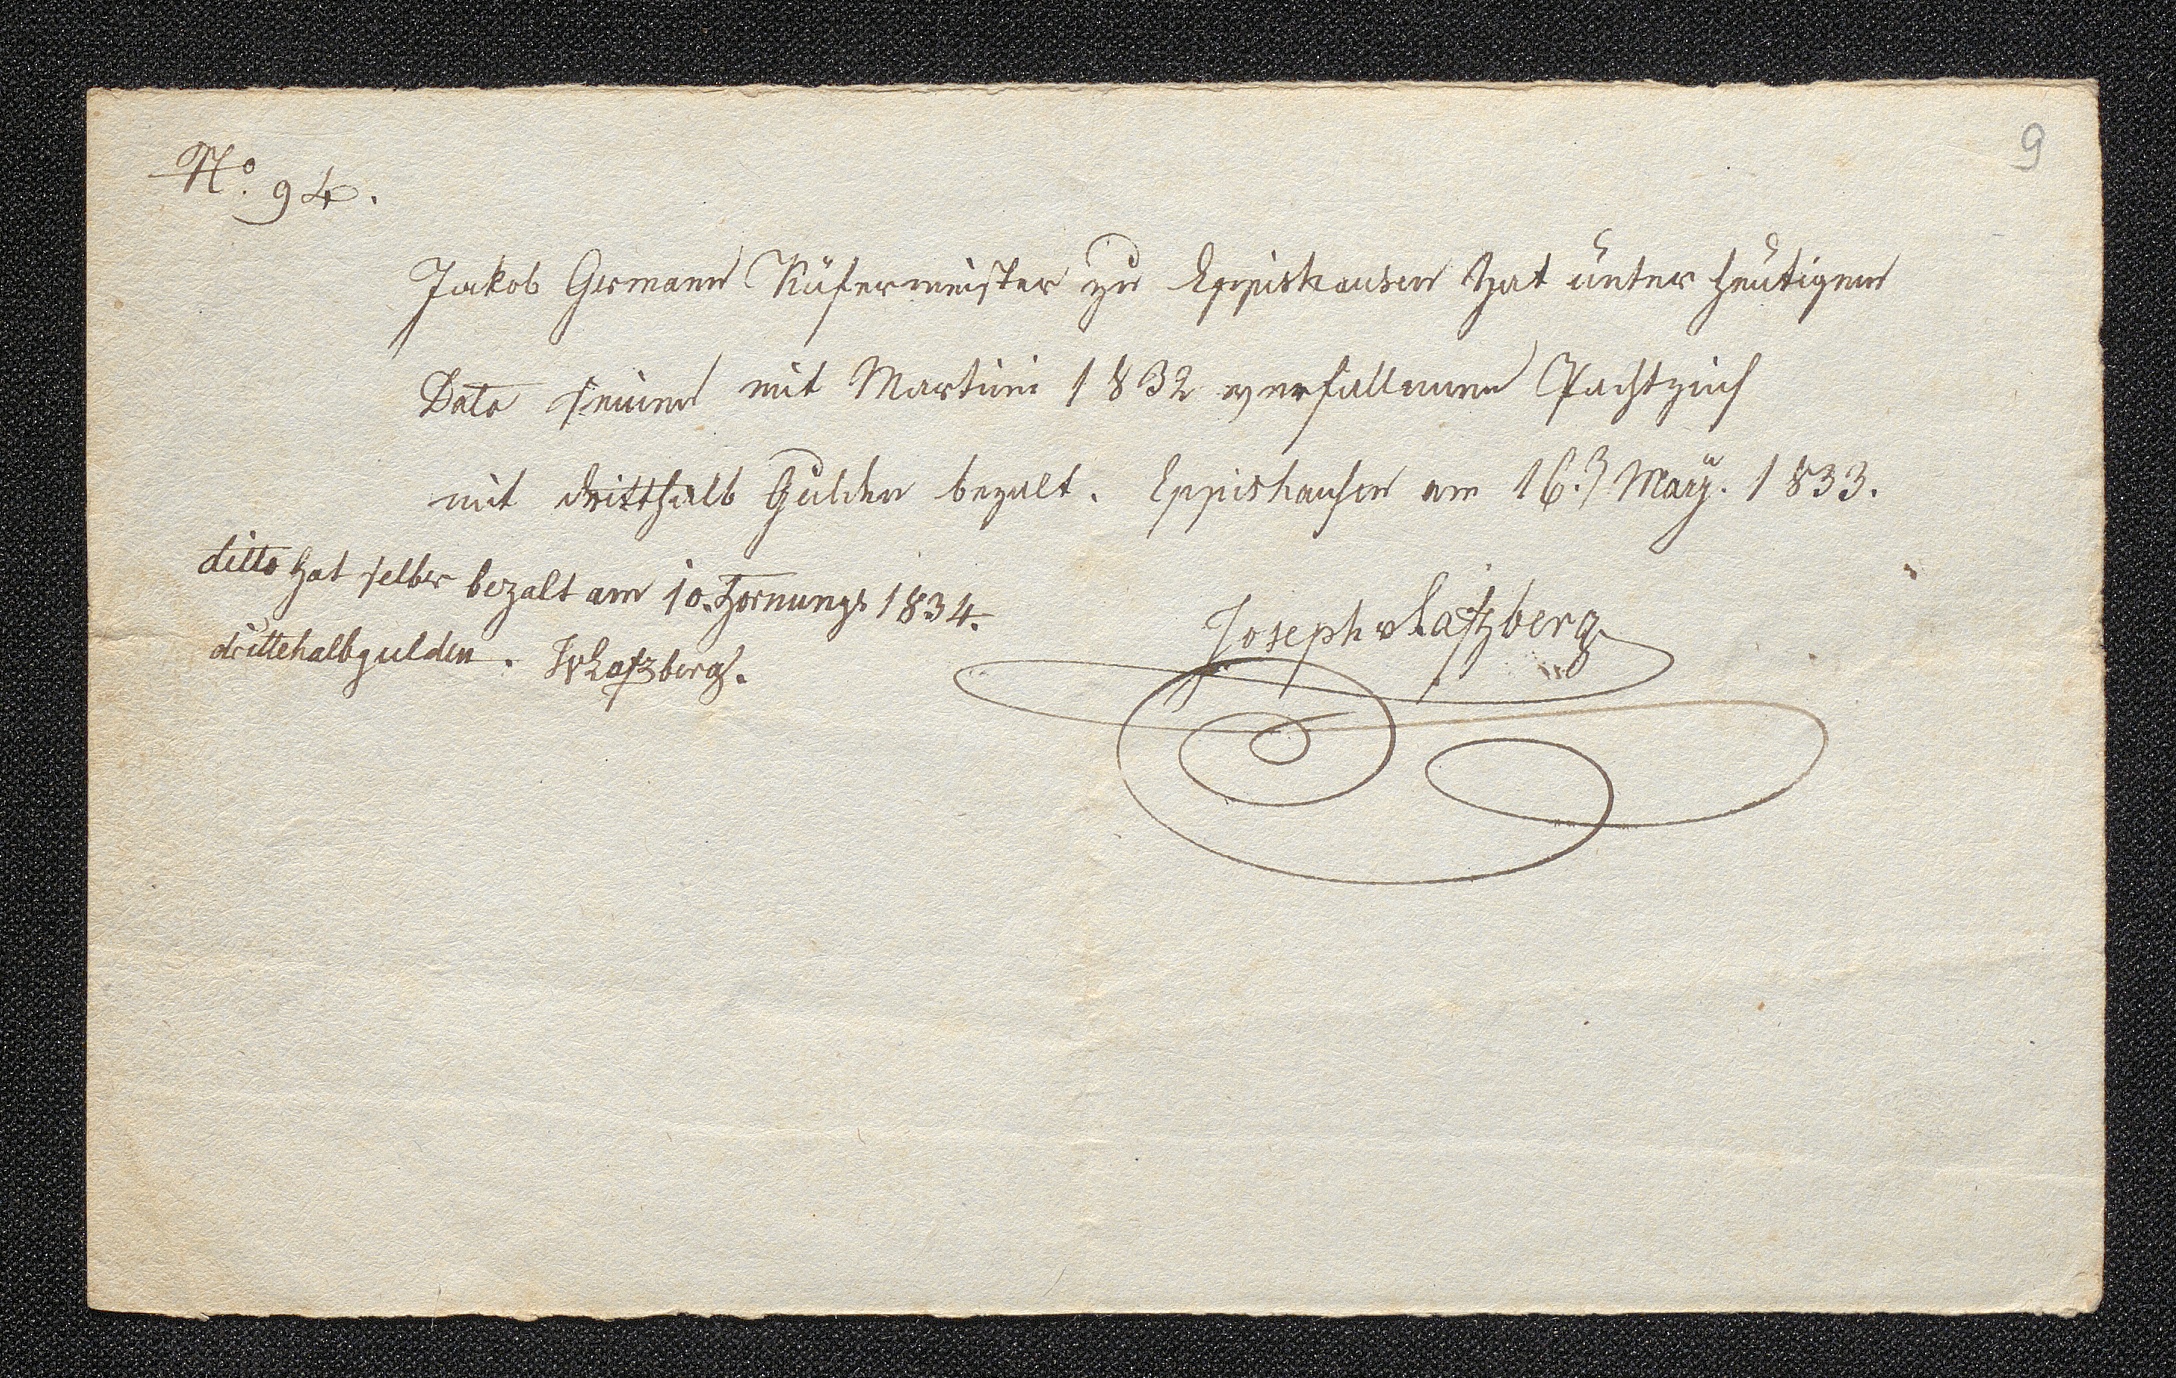 9
No. 94.
Jakob Germann Küfermeister zu Eppishausen hat unter heutigem
Dato seinen mit Martini 1832 verfallenen Pachtzins
mit dritthalb Gulden bezalt. Eppishausen am 16. May. 1833.
Joseph v Laſzberg
ditto hat selber bezalt am 10. Hornungs 1834.
drittehalbgulden. JvLaſzberg.